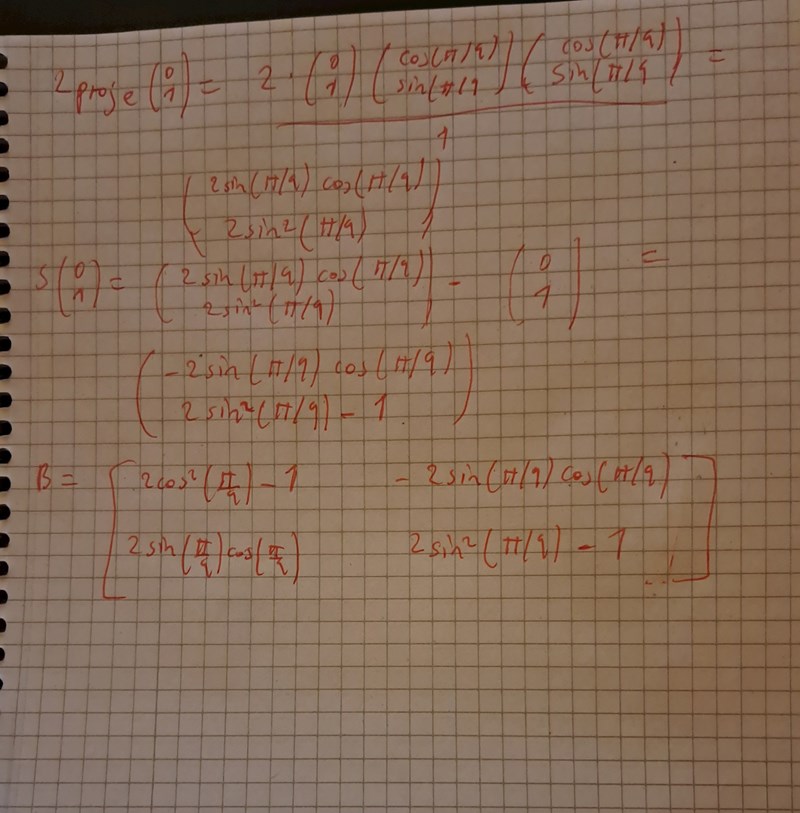 2 proj e (0 1) = 2 · (0 1) (cos(π/9) sin(π/9) (cos(π/9) sin(π/9) =
1
(2sin(π/9) cos(π/9)
2sin²(π/9))
S(0 1) = (2sin(π/9) cos(π/9) 2sin²(π/9)) - (0 1) =
(-2sin(π/9) cos(π/9)
2sin²(π/9) - 1)
B = [2cos²(π/9) - 1 - 2sin(π/9) cos(π/9)
2sin(π/9)cos(π/9) 2sin²(π/9) - 1]